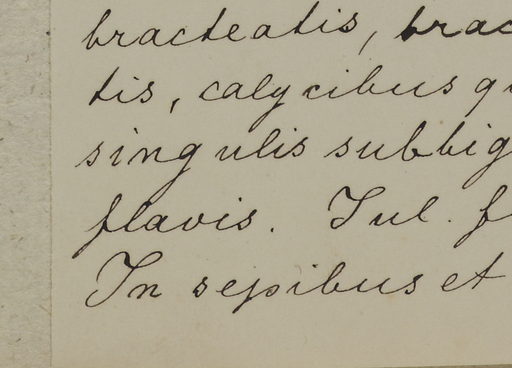 bracteatis, brac
tis, calycibus q
singulis subbig
flavis. Jul. f
In sepibus et